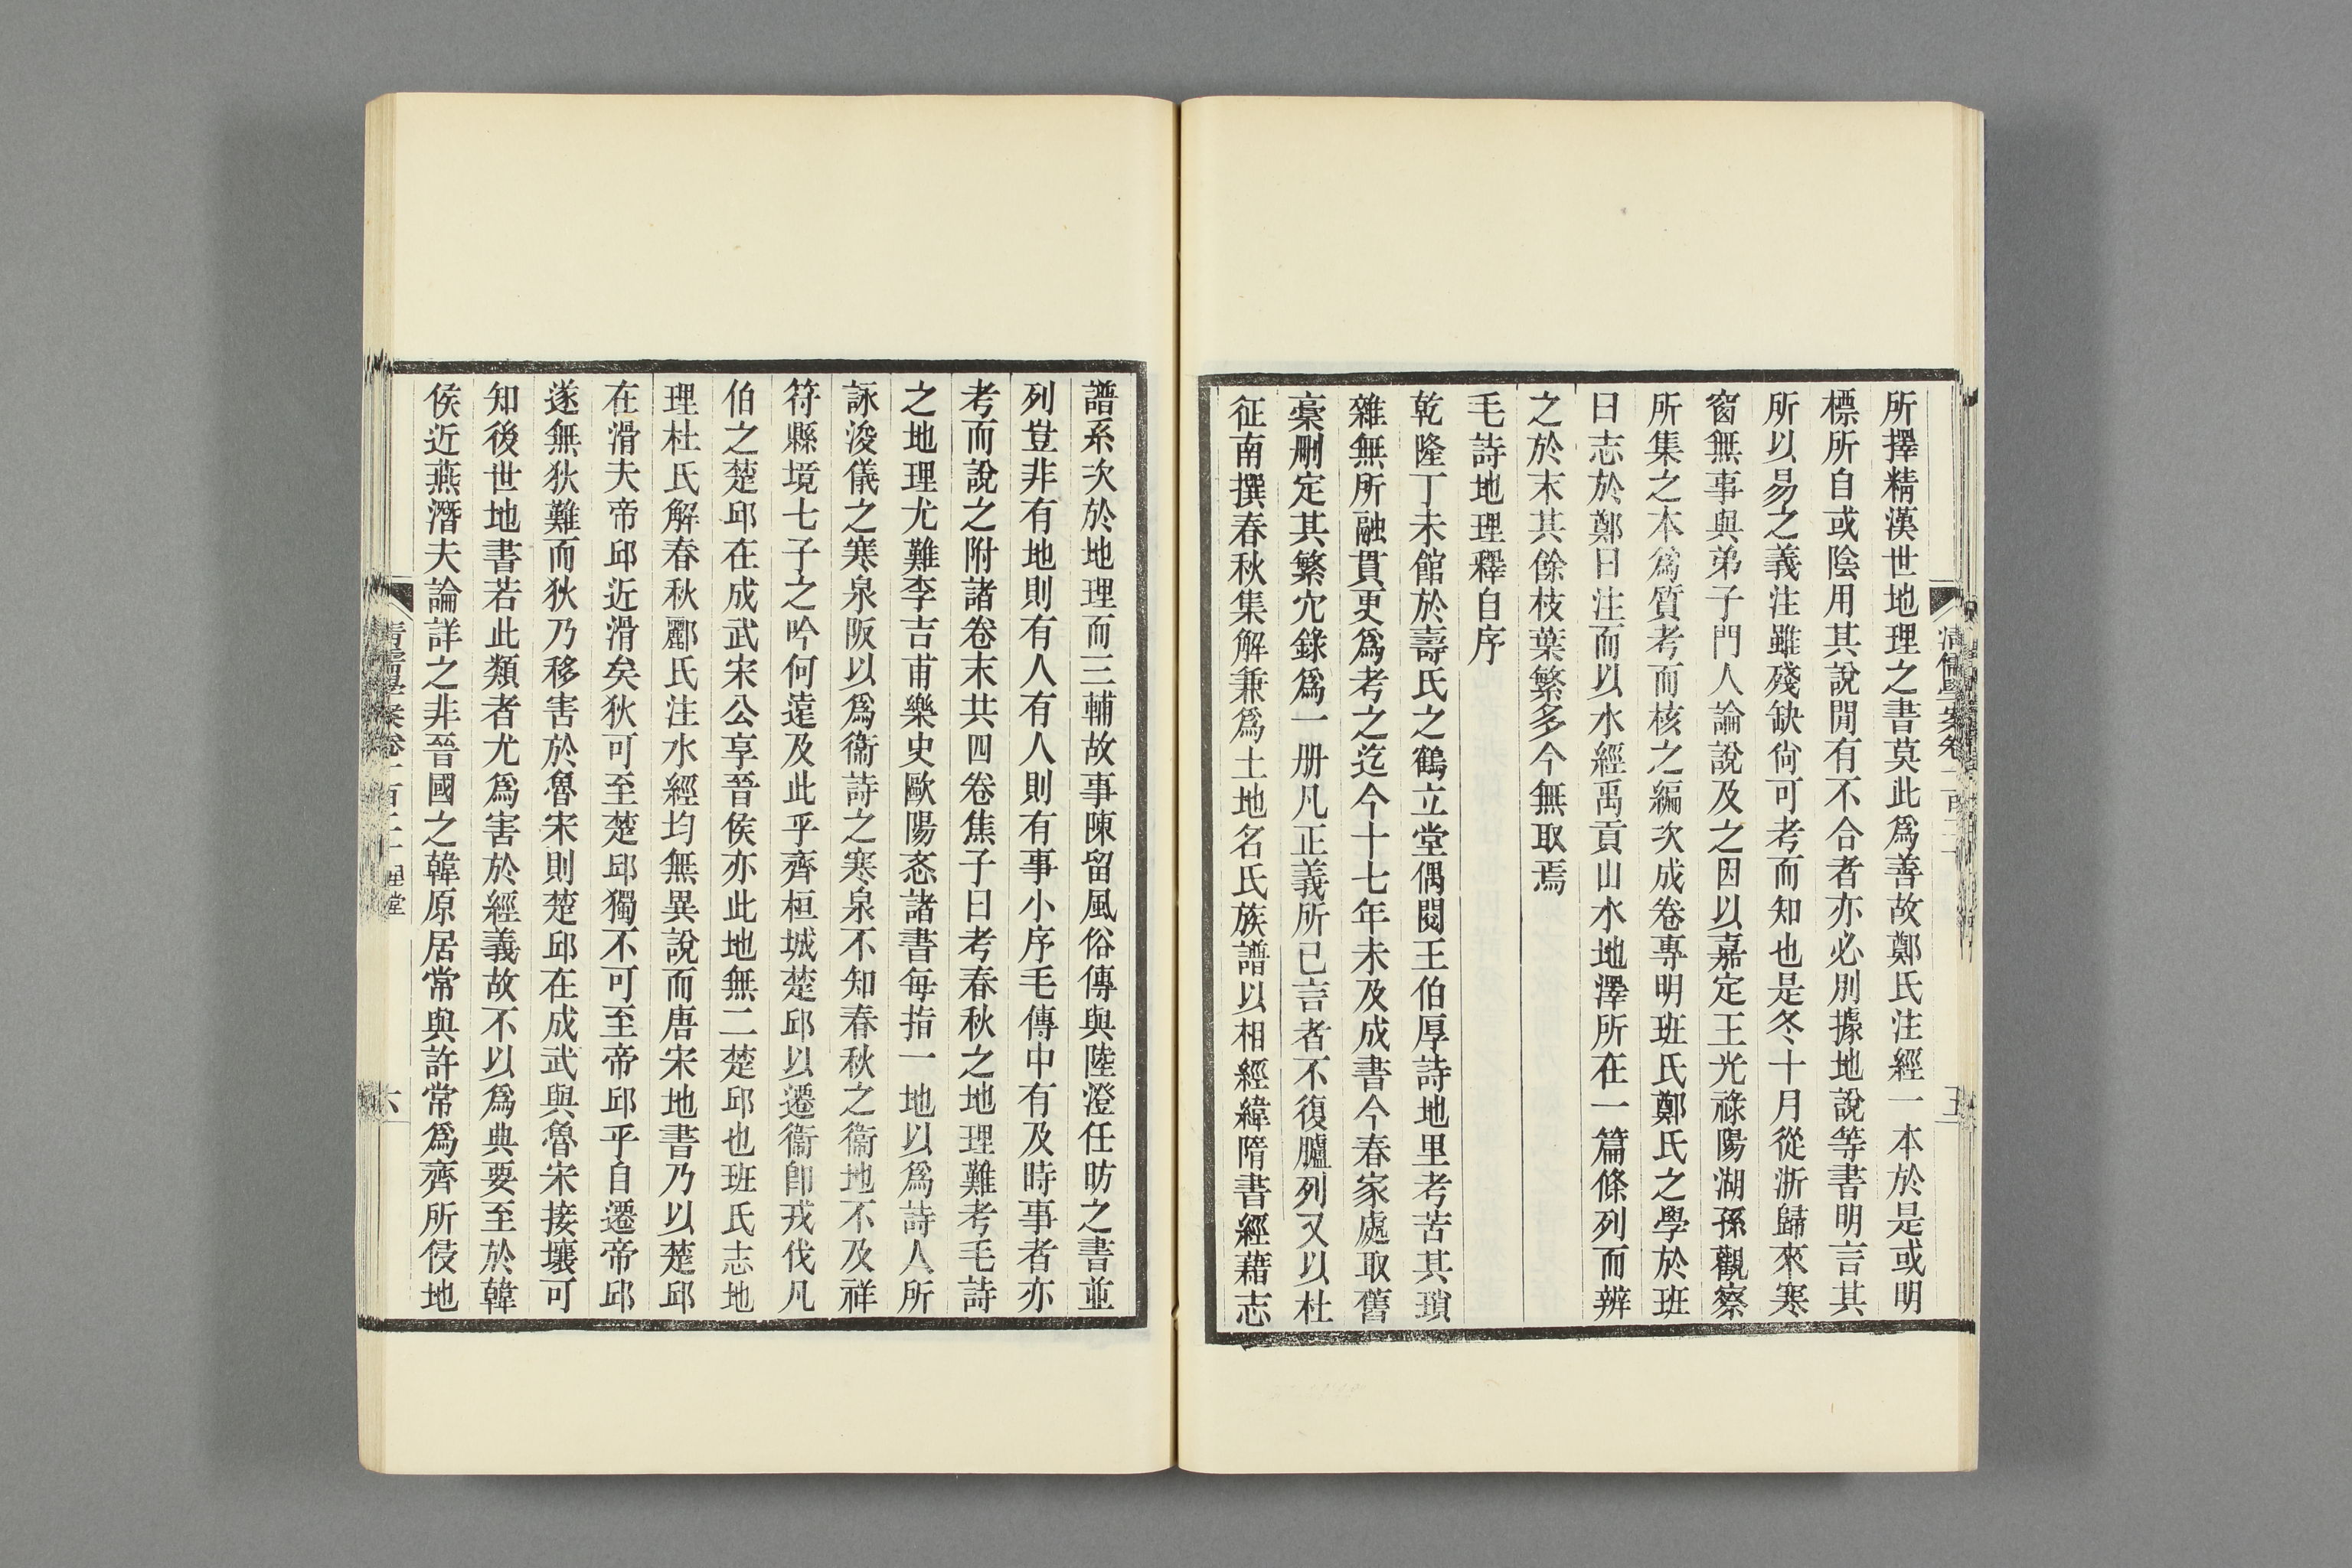 所擇精漢世地理之書莫此爲善故鄭氏注經一本於是或明
標所自或陰用其說閒有不合者亦必別據地說等書明言其
所以易之義注雖殘缺尙可考而知也是冬十月從浙歸來寒
窗無事與弟子門人論說及之因以嘉定王光祿陽湖孫觀察
所集之本爲質考而核之編次成卷專明班氏鄭氏之學於班
曰志於鄭曰注而以水經禹貢山水地澤所在一篇條列而辨
之於末其餘枝葉繁多今無取焉
毛詩地理釋自序
乾隆丁未館於壽氏之鶴立堂偶閱王伯厚詩地里考苦其瑣
雜無所融貫更爲考之迄今十七年未及成書今春家處取舊
稾刪定其繁宂錄爲一册凡正義所已言者不復臚列又以杜
征南撰春秋集解兼爲土地名氏族譜以相經緯隋書經藉志
譜系次於地理而三輔故事陳留風俗傳與陸澄任昉之書並
列豈非有地則有人有人則有事小序毛傳中有及時事者亦
考而說之附諸卷末共四卷焦子曰考春秋之地理難考毛詩
之地理尤難李吉甫樂史歐陽忞諸書每指一地以爲詩人所
詠浚儀之寒泉阪以爲衞詩之寒泉不知春秋之衞地不及祥
符縣境七子之吟何遠及此乎齊桓城楚邱以遷衞卽戎伐凡
伯之楚邱在成武宋公享晉侯亦此地無二楚邱也班氏志地
理杜氏解春秋酈氏注水經均無異說而唐宋地書乃以楚邱
在滑夫帝邱近滑矣狄可至楚邱獨不可至帝邱乎自遷帝邱
遂無狄難而狄乃移害於魯宋則楚邱在成武與魯宋接壤可
知後世地書若此類者尤爲害於經義故不以爲典要至於韓
侯近燕潛夫論詳之非晉國之韓原居常與許常爲齊所侵地
清儒學案卷一百二十 理堂
六